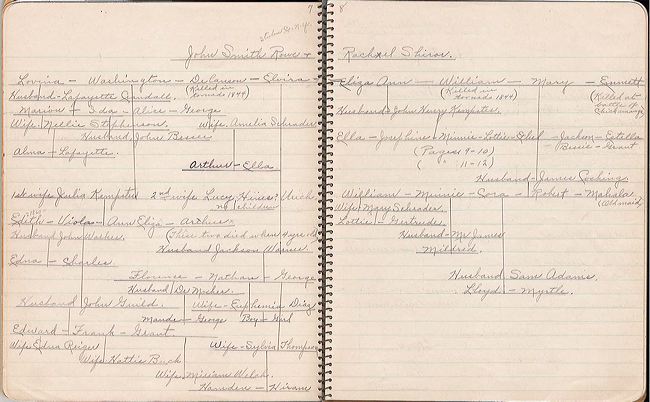 7
John Smith Rowe +
Lovina - Washington - Delanson - Elvira -
Husband - Lafayette Crandall. (Killed in tornado 1844)
Marion + Ida - Alice - George
Wife. Nellie Stephenson. Wife. Amelia Schrader
Husband John Bessie
Alma - Lafayette.
Arthur - Ella
1st wife Julia Kempster 2nd wife Lucy Hines? Utah
no children
Edith - Viola - Ann Eliza - Arthur.
Husband John Walker. (These two died when 4 yrs old)
Husband Jackson Warner
Edna - Charles
Florence - Nathan - George
Husband De Mocker
Husband John Guild. Wife - Euphemia Diaz
Maude - George Boy - Girl
Edward - Frank - Grant.
Wife Edna Reiger Wife - Sylvia Thompson
Wife Hattie Buch
Wife. Miriam Welch.
Hamden - Hiram
8
Rachael Shiror.
Eliza Ann - William - Mary - Emmett
(Killed in tornado 1844) (Killed at battle of Chickamauga)
Husband - John Henry Kempster.
Ella - Josephine + Minnie - Lottie - Ethel - Jackson - Estella
(Pages 9-10) Bessie - Grant
" 11-12)
Husband - James Cocking.
William - Minnie - Cora - Robert - Mahala
Wife Mary Schrader. (Old maid)
Lottie - Gertrude.
Husband - Mr James
Mildred.
Husband Sam Adams.
Lloyd - Myrtle.